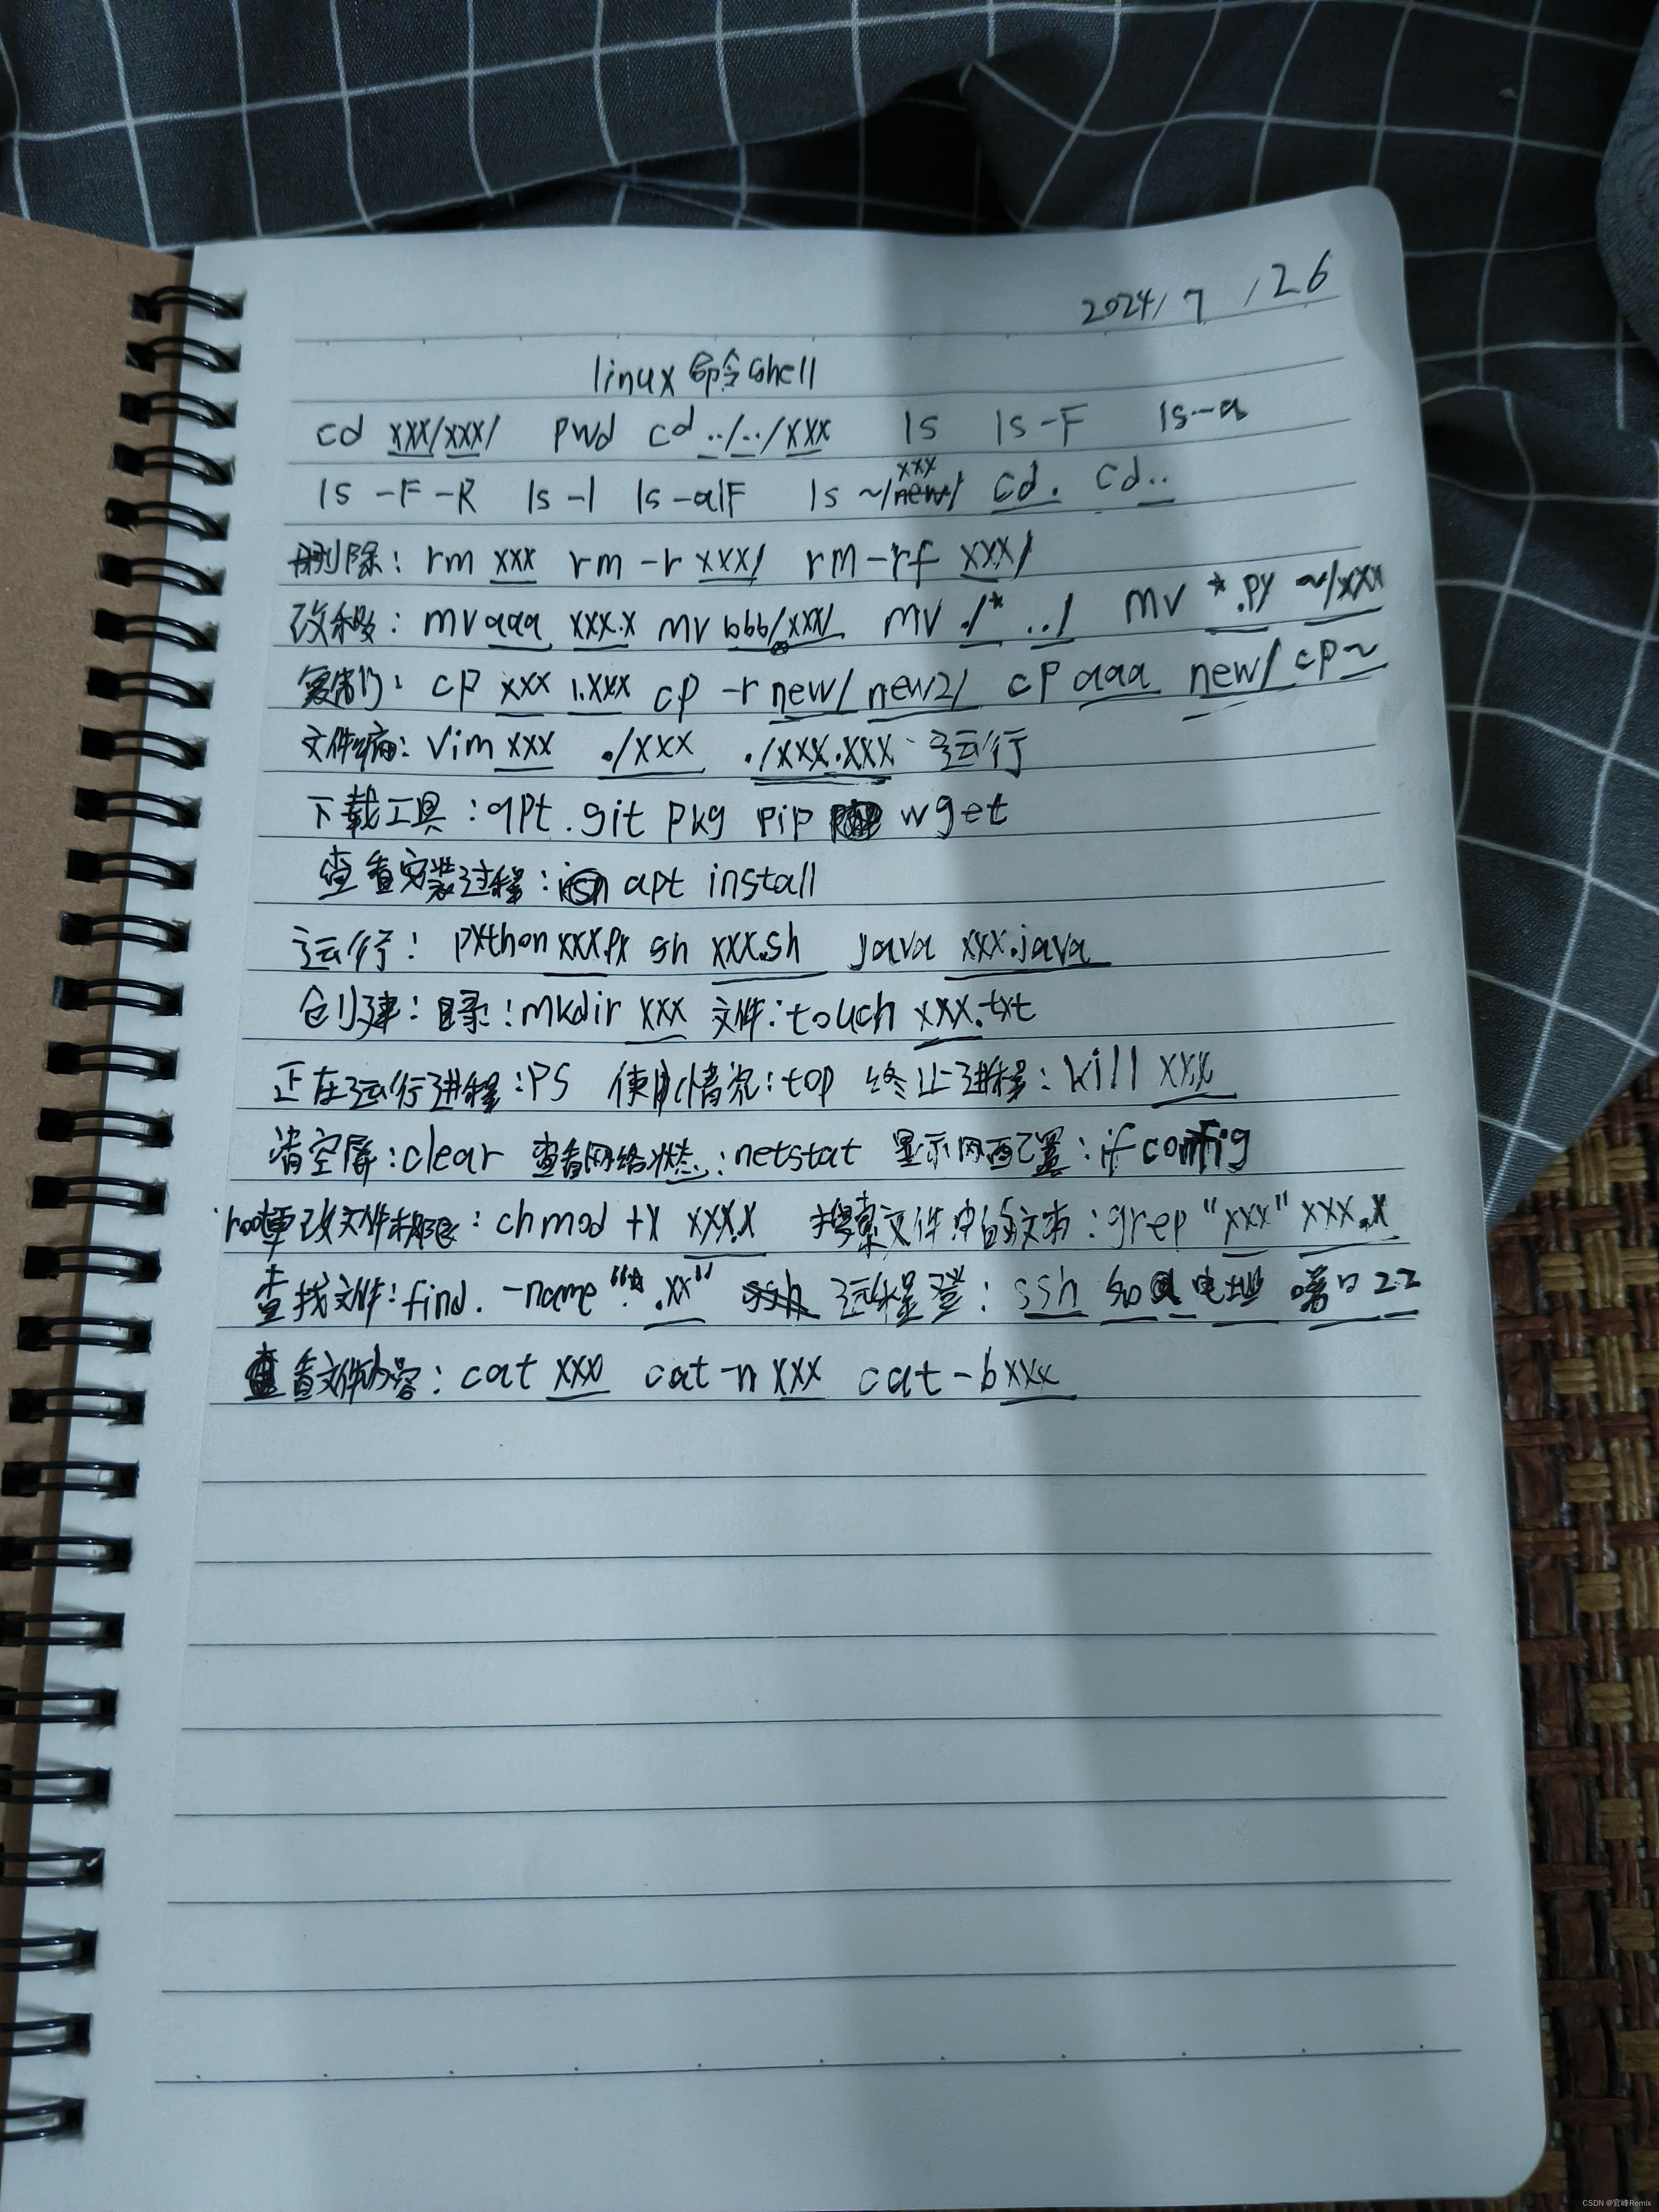 2024/7/26
linux命令shell
cd xxx/xxx/ pwd cd ../../xxx ls ls -F ls -a
ls -F -R ls -l ls -alF ls ~/xxx/ cd . cd ..
删除: rm xxx rm -r xxx/ rm -rf xxx/
改移: mv aaa xxx.x mv bbb/xxx/ mv ./* ../ mv *.py ~/xxx
复制: cp xxx 1.xxx cp -r new/ new2/ cp aaa new/ cp ~
文件编: vim xxx ./xxx ./xxx.xxx 运行
下载工具: apt. git pkg pip wget
查看安装过程: apt install
运行: python xxx.py sh xxx.sh java xxx.java
创建: 目录: mkdir xxx 文件: touch xxx.txt
正在运行进程: PS 使用情况: top 终止进程: kill xxx
清空屏: clear 查看网络状态: netstat 显示网配置: ifconfig
root更改文件权限: chmod +x xxx.x 搜索文件中的文本: grep "xxx" xxx.x
查找文件: find. -name "*.xx" 远程登: ssh 端口22
查看文件内容: cat xxx cat -n xxx cat -b xxx
CSDN @官峰Remix